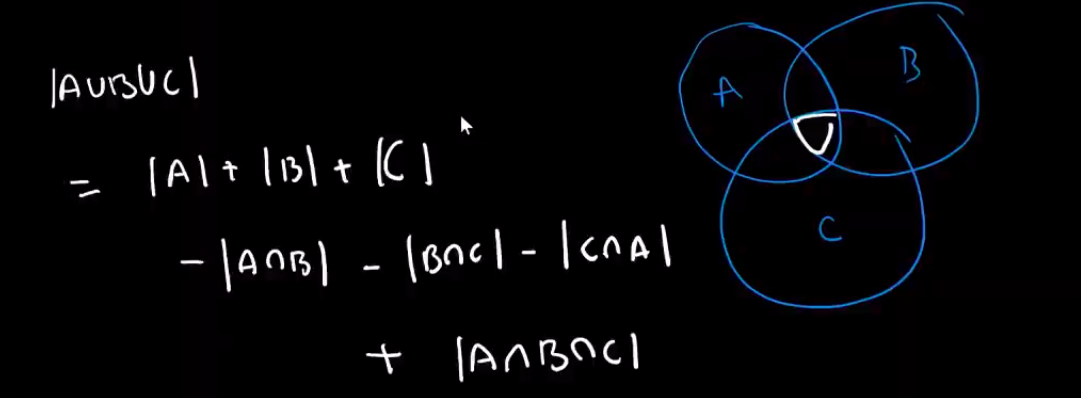 |A∪B∪C|
= |A| + |B| + |C|
- |A∩B| - |B∩C| - |C∩A|
+ |A∩B∩C|
A
B
C